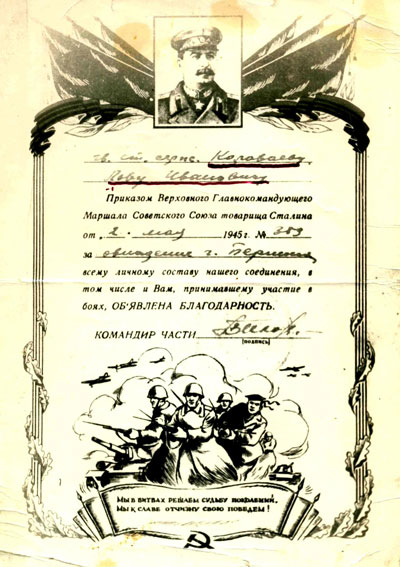 гв. ст. серж. Короваеву
Льву Ивановичу
Приказом Верховного Главнокомандующего
Маршала Советского Союза товарища Сталина
от 2 мая 1945 г. № 359
за овладение г. Берлин
всему личному составу нашего соединения, в
том числе и Вам, принимавшему участие в
боях, ОБ'ЯВЛЕНА БЛАГОДАРНОСТЬ.
КОМАНДИР ЧАСТИ
(подпись)
МЫ В БИТВАХ РЕШАЕМ СУДЬБУ ПОКОЛЕНИЙ,
МЫ К СЛАВЕ ОТЧИЗНУ СВОЮ ПОВЕДЕМ!